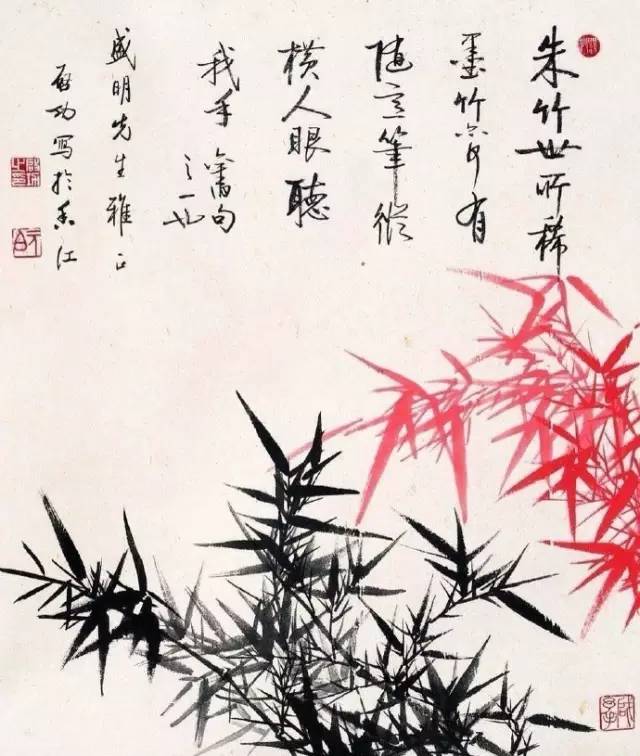 朱竹世所稀
墨竹有
隨意筆縱
橫人眼聽
我手 舊句
之一也
盛明先生雅正
啟功寫於香江